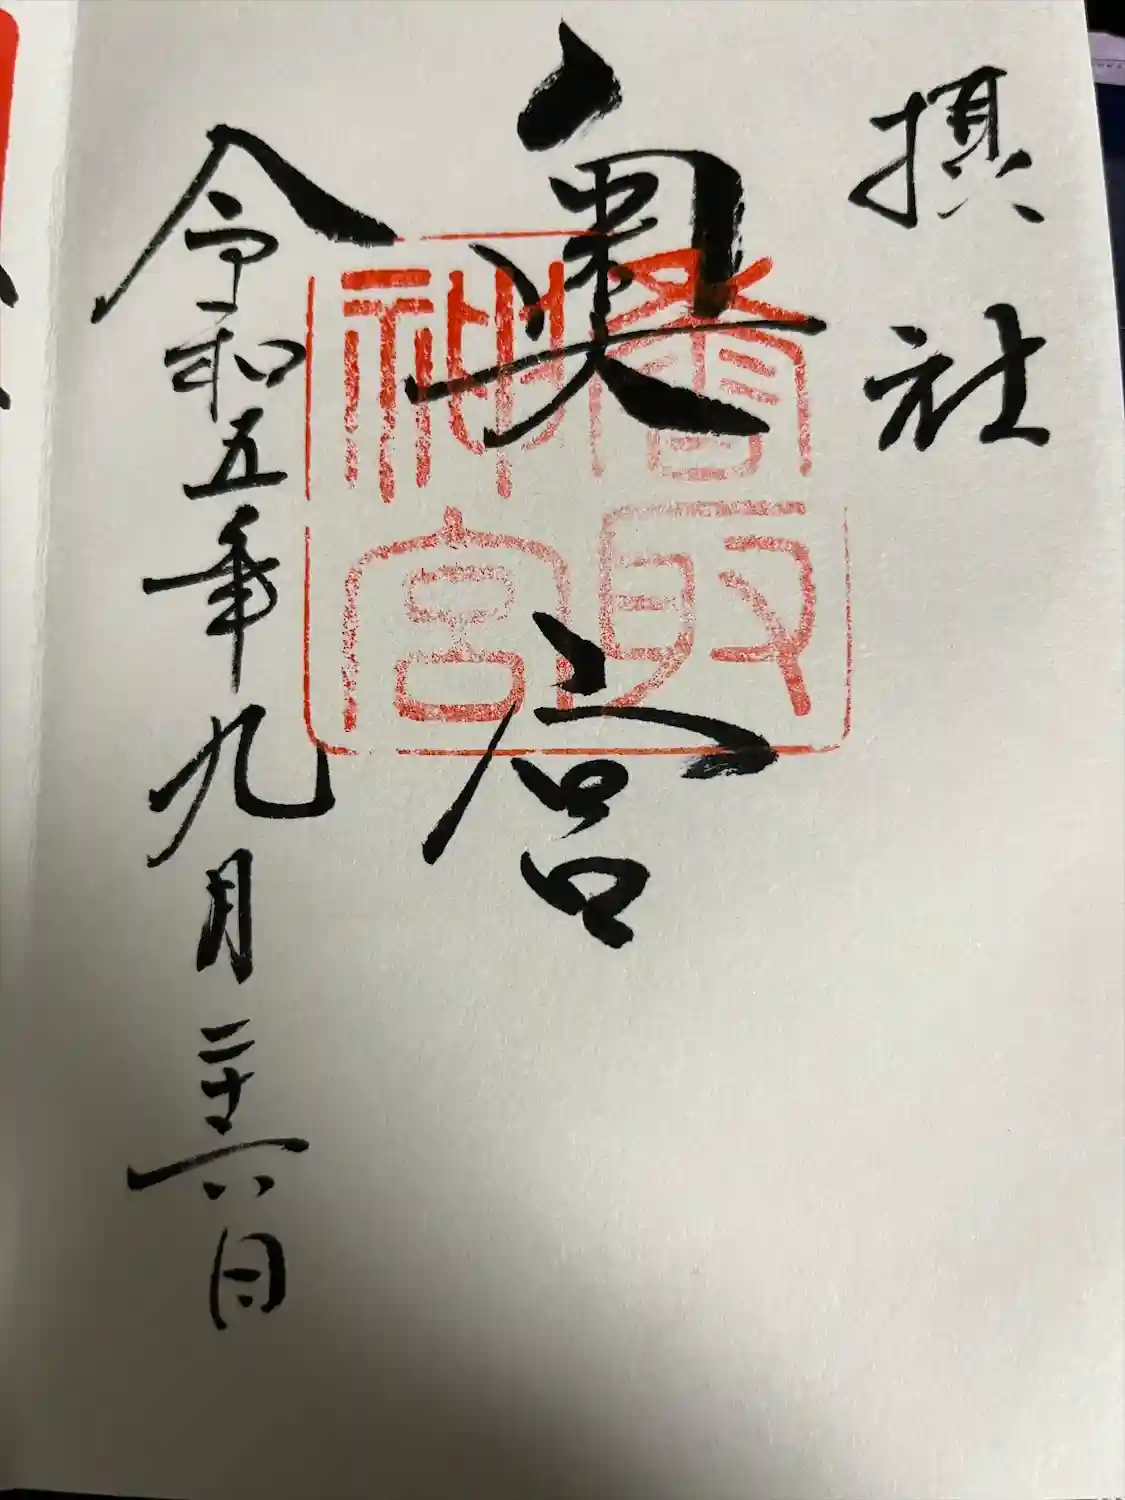 摂社
奥宮
香取
神宮
令和五年九月二十六日